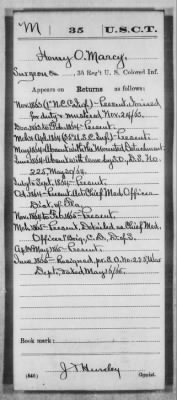 M 35 U.S.C.T.
Henry O. Marcy.
Surgeon, 35 Reg't U. S. Colored Inf.
Appears on Returns as follows:
Nov. 1863 (1st N.C.C. Inf)—Present. Joined
for duty & mustered Nov. 24/63.
Dec. 1863 to Feb. 1864—Present.
Mch & Apl. 1864 (35 U.S.C. Inf)—Present.
May 1864—Absent with the Mounted Detachment.
June 1864—Absent with leave by S.O., D.S. No.
225 May 30/64.
July to Sept. 1864—Present.
Oct. 1864—Present. Act. Chief Med. Officer
Dist. of Fla.
Nov. 1864 to Feb. 1865—Present.
Mch. 1865—Present. Detailed as Chief Med.
Officer Brig., C.D., D. of S.
Apl & May 1865—Present.
June 1865—Resigned, per S.O. No. 235 War
Dept. dated May 16/65.
Book mark:
J T Hursley
(546) Copyist.